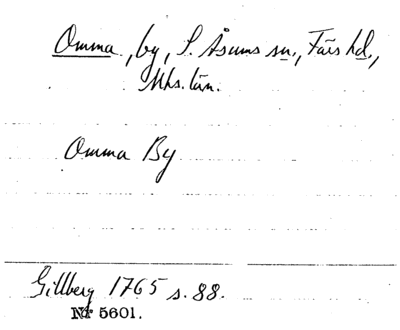 Omma, by, S. Åsums sn., Färs hd.,
Mhs. län.
Omma By
Gillberg 1765 s. 88.
Nr 5601.